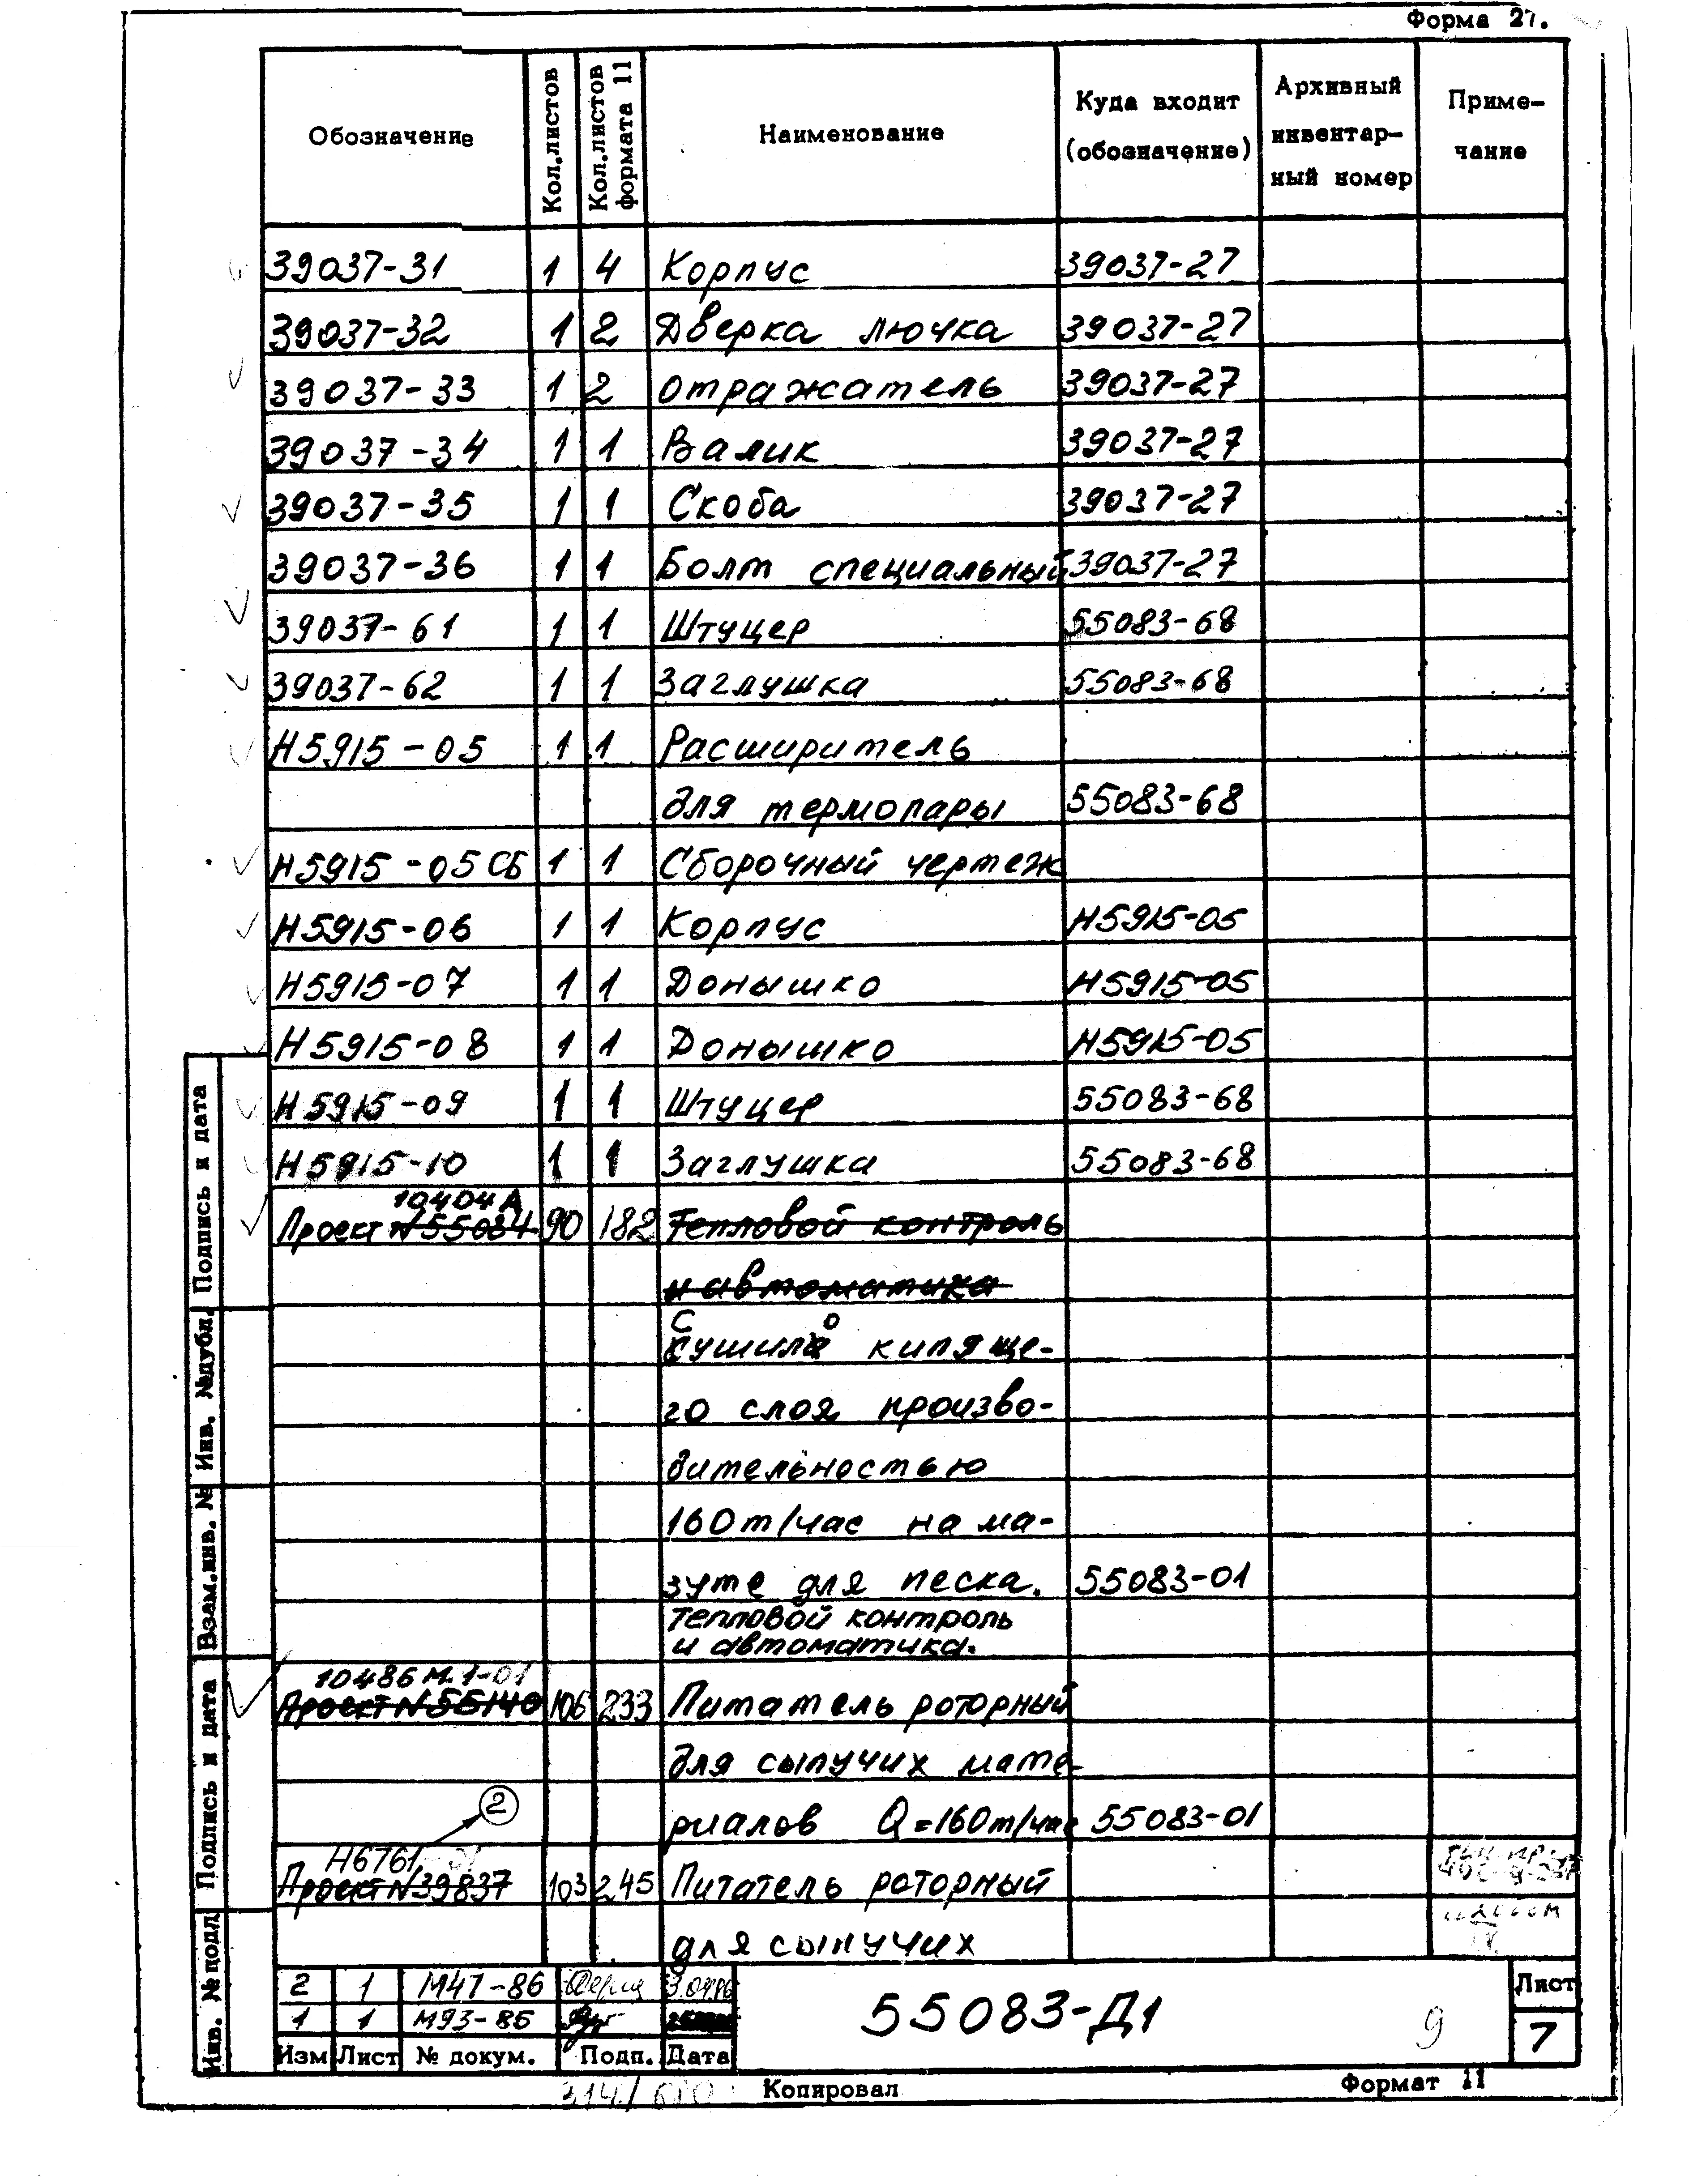 Форма 27.
Обозначение Кол.листов Кол.листов формата 11 Наименование Куда входит (обозначение) Архивный инвентар-ный номер Приме-чание
39037-31 1 4 Корпус 39037-27
39037-32 1 2 Дверка лючка 39037-27
39037-33 1 2 Отражатель 39037-27
39037-34 1 1 Валик 39037-27
39037-35 1 1 Скоба 39037-27
39037-36 1 1 Болт специальный 39037-27
39037-61 1 1 Штуцер 55083-68
39037-62 1 1 Заглушка 55083-68
Н5915-05 1 1 Расширитель
для термопары 55083-68
Н5915-05СБ 1 1 Сборочный чертеж
Н5915-06 1 1 Корпус Н5915-05
Н5915-07 1 1 Донышко Н5915-05
Н5915-08 1 1 Донышко Н5915-05
Н5915-09 1 1 Штуцер 55083-68
Н5915-10 1 1 Заглушка 55083-68
10404А
Проект N55084 90 182 Тепловой контроль
и автоматика
Сушило кипяще-
го слоя произво-
дительностью
160т/час на ма-
зуте для песка. 55083-01
Тепловой контроль
и автоматика.
10486М.1-01
Проект N55140 106 233 Питатель роторный
для сыпучих мате-
риалов Q=160т/час 55083-01
2
Н6761-01
Проект N39837 103 245 Питатель роторный
для сыпучих
2 1 М47-86
1 1 М93-85
Изм Лист № докум. Подп. Дата
55083-Д1
9
Лист
7
Копировал
Формат 11
Подпись и дата
Инв. №дубл.
Взам.инв. №
Подпись и дата
Инв. №подл